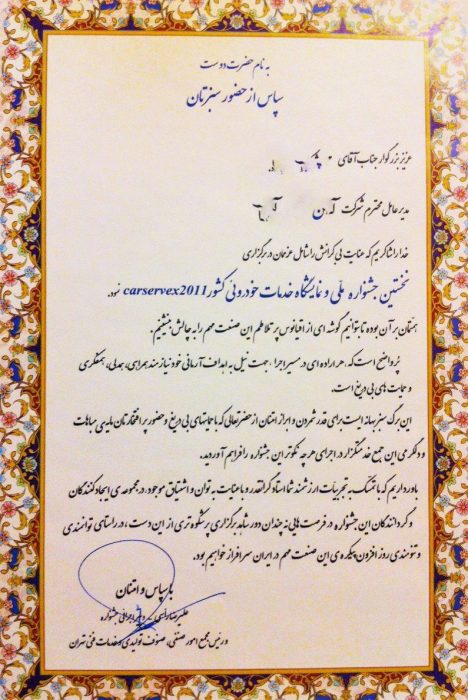 به نام حضرت دوست
سپاس از حضور سبزتان
عزیز بزرگوار جناب آقای
مدیر عامل محترم شرکت
خدا را شاکریم که عنایت بی کرانش را شامل عزممان در برگزاری
نخستین جشنواره ملّی و نمایشگاه خدمات خودرویی کشور carservex2011 نمود.
همتمان بر آن بوده تا بتوانیم گوشه ای از اقیانوس پر تلاطم این صنعت مهم را به چالش بنشینیم.
پُر واضح است که، هر اراده ای در مسیر اجرا، جهت نیل به اهداف آرمانی خود نیازمند همراهی، همدلی، همفکری
و حمایت های بی دریغ است.
این برگ سبز بهانه ایست برای قدر شمردن و ابراز امتنان از حضرتعالی که با حمایتهای بی دریغ و حضور پر افتخارتان مایه ی مباهات
و دلگرمی این جمع خدمتگزار در اجرای هر چه نکوتر این جشنواره را فراهم آوردید.
باور داریم که با تمسک به تجربیات ارزشمند شما استاد گرانقدر و با عنایت به توان و اشتیاق موجود در مجموعه ی ایجاد کنندگان
و گردانندگان این جشنواره در فرصت هایی نه چندان دور شاهد برگزاری پر شکوه تری از این دست، در راستای توانمندی
و تنومندی روز افزون پیکره ی این صنعت مهم در ایران سرافراز خواهیم بود.
با سپاس و امتنان
علیرضا جشنواره
و رئیس مجمع امور صنفی، صنوف تولیدی و خدمات فنی تهران